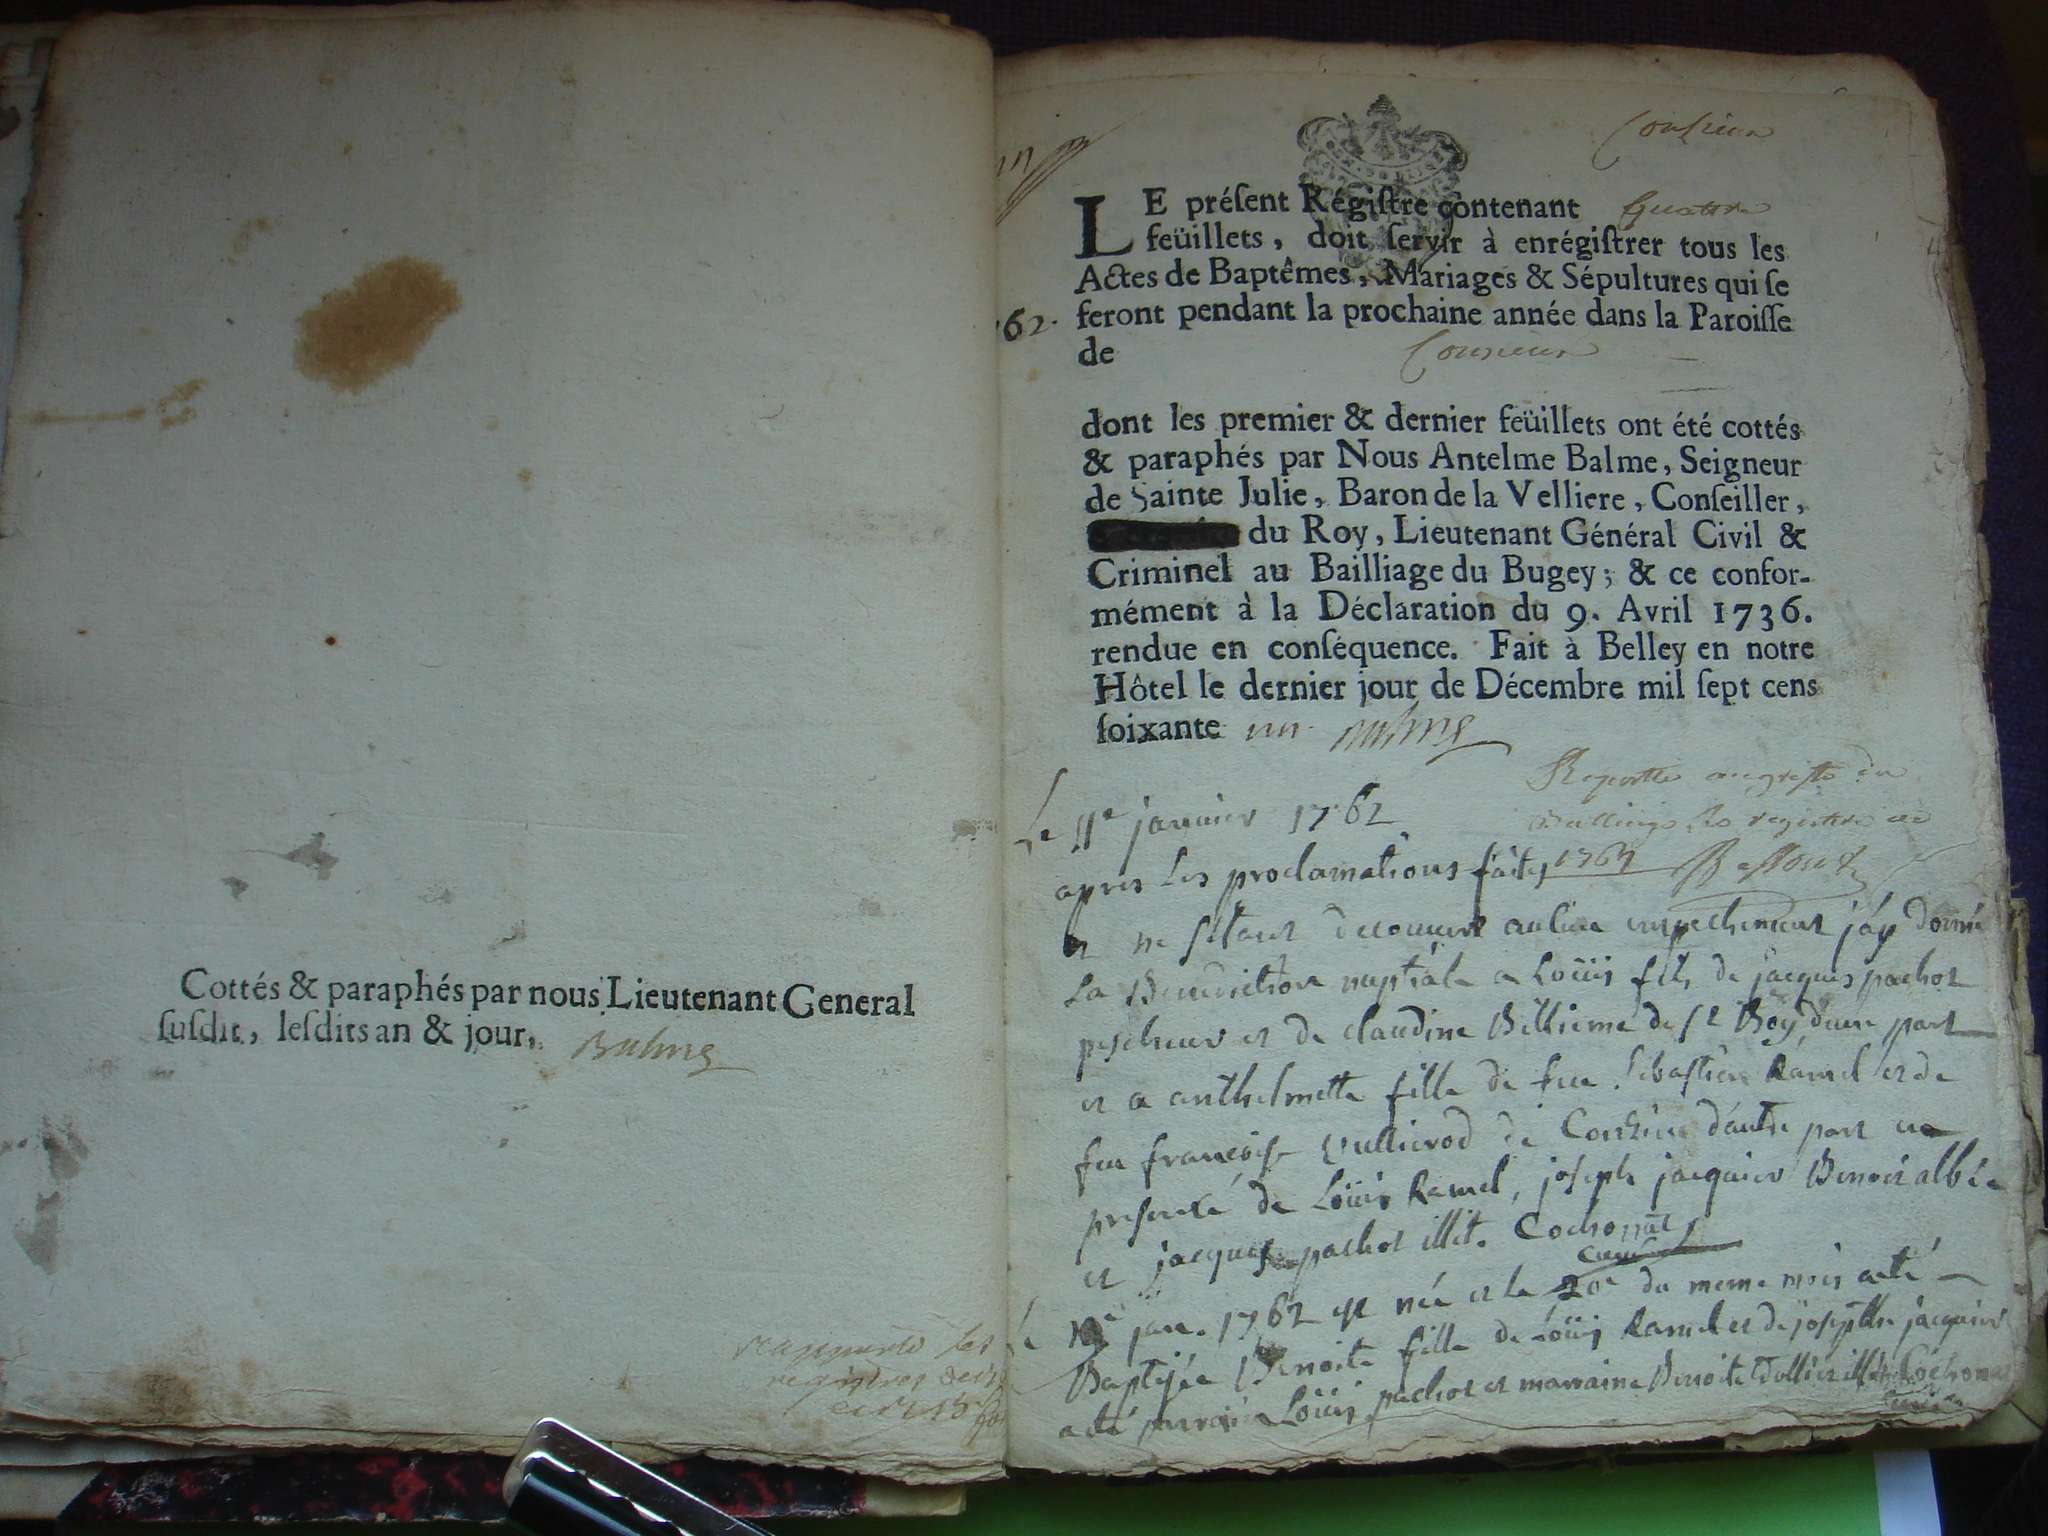 Cottés & paraphés par nous Lieutenant General
ſuſdit, leſdits an & jour,
Balme
Conſieux
LE préſent Régiſtre contenant quattre
feüillets, doit ſervir à enrégiſtrer tous les
Actes de Baptêmes, Mariages & Sépultures qui ſe
feront pendant la prochaine année dans la Paroiſſe
de Conzieux
62.
dont les premier & dernier feüillets ont été cottés
& paraphés par Nous Antelme Balme, Seigneur
de Sainte Julie, Baron de la Velliere, Conſeiller,
du Roy, Lieutenant Général Civil &
Criminel au Bailliage du Bugey; & ce confor-
mément à la Déclaration du 9. Avril 1736.
rendue en conſéquence. Fait à Belley en notre
Hôtel le dernier jour de Décembre mil ſept cens
ſoixante un. Balme
Le 11e janvier 1762
apres les proclamations faites
et ne ſetant decouvert aucune empechement jay donné
La Benediction nuptiale a Loüis fils de jacques pachot
pescheur et de claudine Billieme de St Boy d'une part
et a anthelmette fille de feu Sebastien Ramel et de
feu françoise Vullierod de Conzieu d'autre part en
presence de Loüis Ramel, joseph jacquier Benoit albée
et jacques pachot illit. Cochonat
curé
jan. 1762 est née et le 20e du meme mois a eté
Baptisée Benoite fille de Loüis Ramel et de josephte jacquier
a eté parrain Loüis pachot et marraine Benoite illit. Cochonat
curé